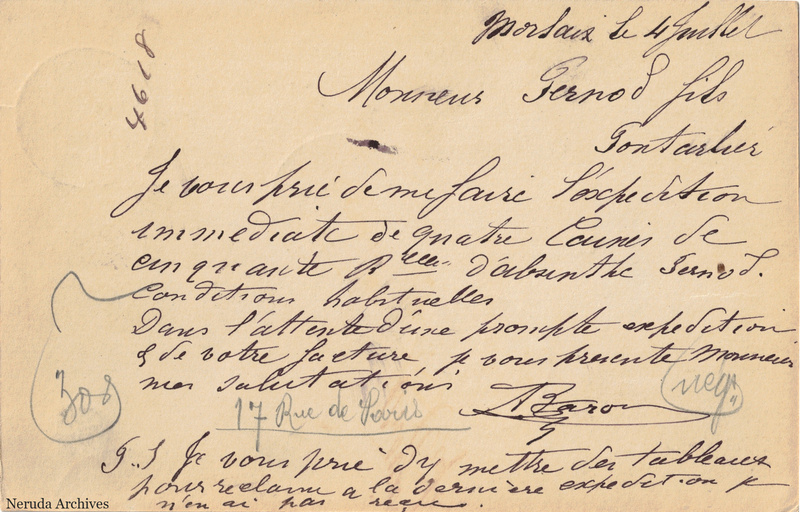 4618
Morlaix le 4 Juillet
Monsieur Pernod fils
Pontarlier
Je vous prie de me faire l'expedition
immediate de quatre Caisses de
cinquante Blles d'absinthe Pernod.
Conditions habituelles
Dans l'attente d'une prompte expedition
& de votre facture je vous presente Monsieur
mes salutations
ABaron
308
17 Rue de Paris
neg
P.S Je vous prie d'y mettre des tableaux
pour reclame a la derniére expedition je
n'en ai pas reçus.
Neruda Archives